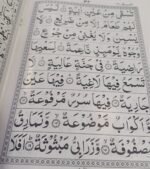 تُسْقٰى مِنْ عَيْنٍ اٰنِيَةٍ ۝ لَيْسَ
لَهُمْ طَعَامٌ اِلَّا مِنْ ضَرِيْعٍ ۝ لَّا
يُسْمِنُ وَلَا يُغْنِيْ مِنْ جُوْعٍ ۝
وُجُوْهٌ يَّوْمَئِذٍ نَّاعِمَةٌ ۝ لِّسَعْيِهَا
رَاضِيَةٌ ۝ فِيْ جَنَّةٍ عَالِيَةٍ ۝ لَّا
تَسْمَعُ فِيْهَا لَاغِيَةً ۝ فِيْهَا عَيْنٌ
جَارِيَةٌ ۝ فِيْهَا سُرُرٌ مَّرْفُوْعَةٌ ۝
وَّاَكْوَابٌ مَّوْضُوْعَةٌ ۝ وَّنَمَارِقُ
مَصْفُوْفَةٌ ۝ وَّزَرَابِيُّ مَبْثُوْثَةٌ ۝ اَفَلَا